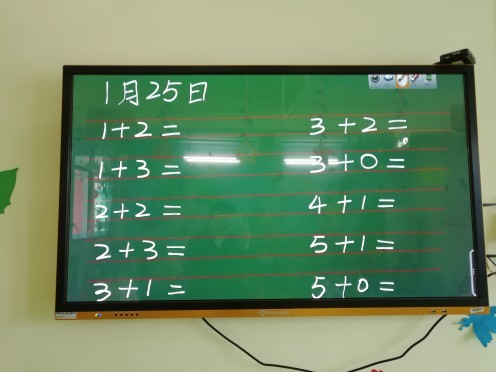 1月25日
1+2= 3+2=
1+3= 3+0=
2+2= 4+1=
2+3= 5+1=
3+1= 5+0=